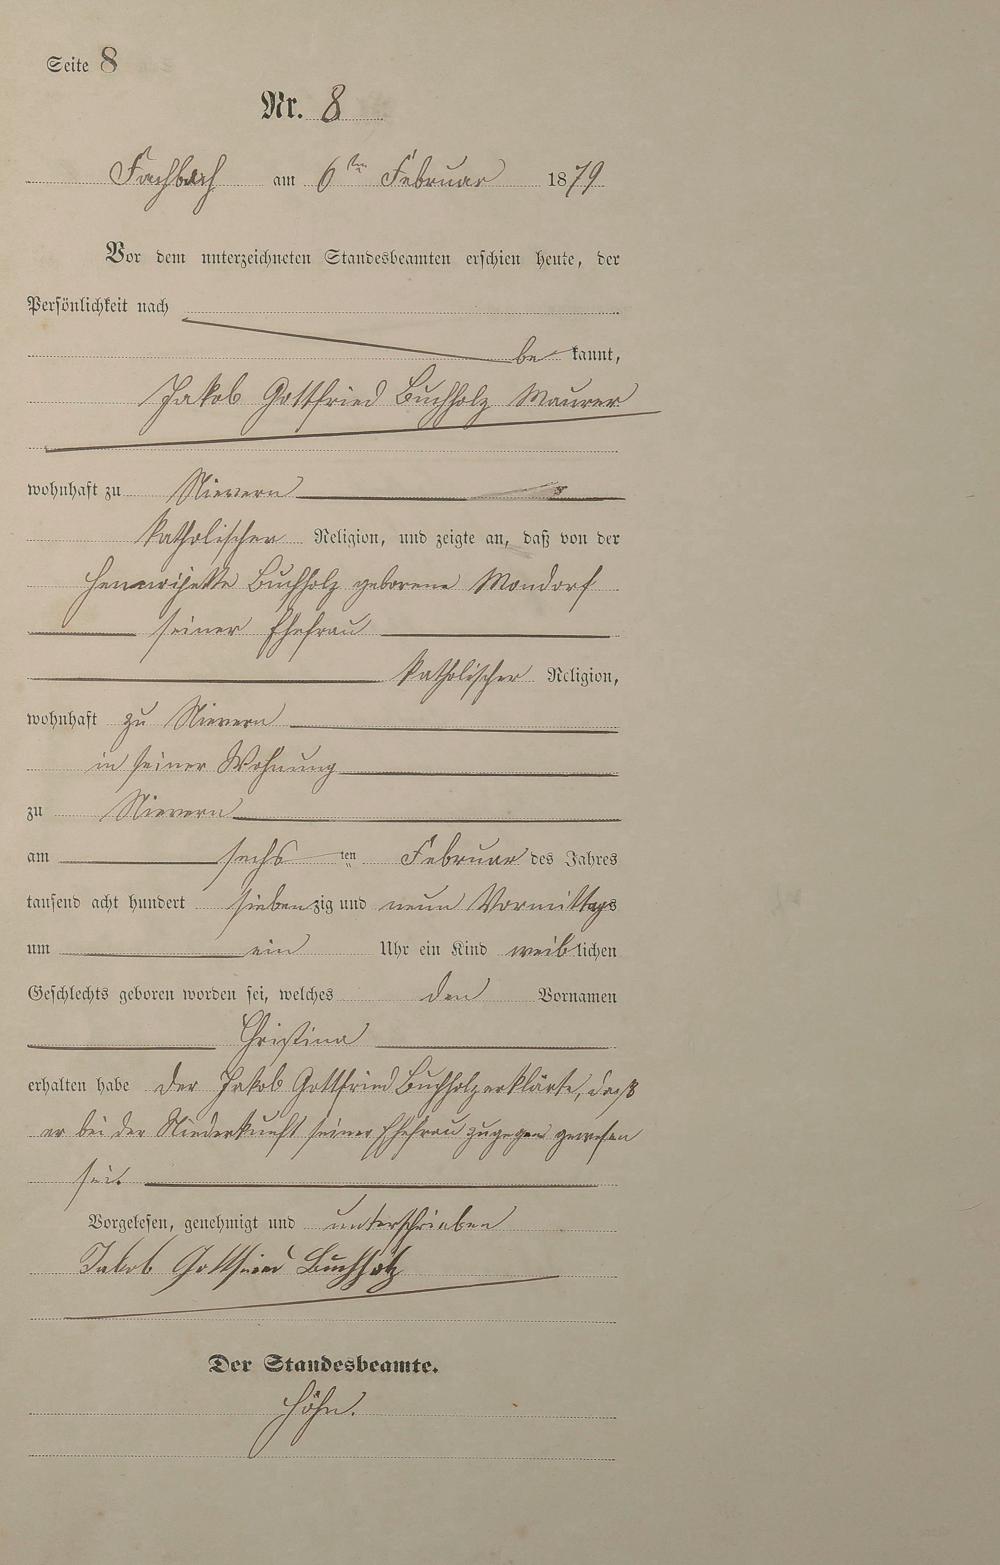 Seite 8
Nr. 8
Fachbach am 6ten Februar 1879
Vor dem unterzeichneten Standesbeamten erschien heute, der
Persönlichkeit nach
be kannt,
Jakob Gottfried Buchholz Maurer
wohnhaft zu Nievern
katholischer Religion, und zeigte an, daß von der
Buchholz geborene Mondorf
seiner Ehefrau
katholischer Religion,
wohnhaft zu Nievern
in seiner Wohnung
zu Nievern
am sechs ten Februar des Jahres
tausend acht hundert siebenzig und neun Vormittags
um ein Uhr ein Kind weiblichen
Geschlechts geboren worden sei, welches den Vornamen
Christina
erhalten habe Der Jakob Gottfried Buchholz erklärte, daß
er bei der Niederkunft seiner Ehefrau zugegen gewesen
sei.
Vorgelesen, genehmigt und unterschrieben
Jakob Gottfried Buchholz
Der Standesbeamte.
Höhn.